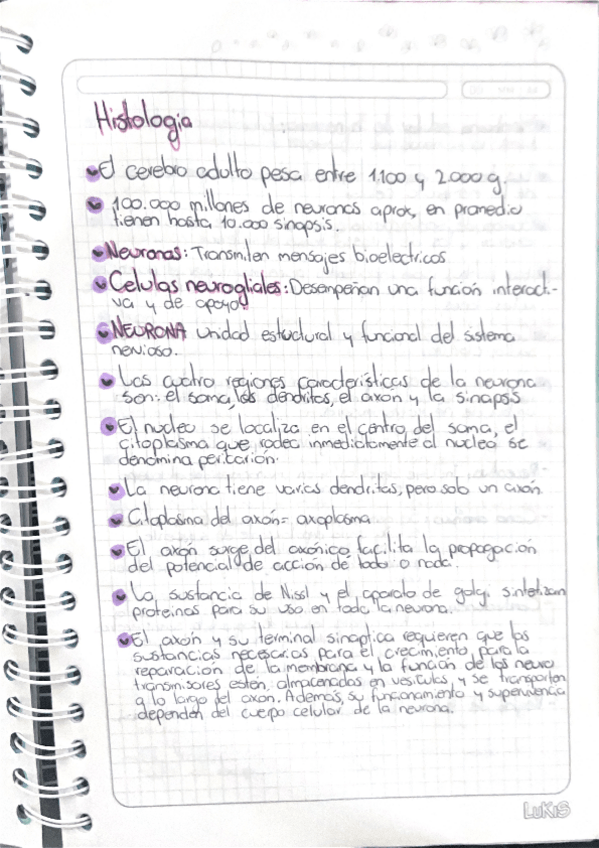 Histologia
El cerebro adulto pesa entre 1.100 y 2.000 g.
100.000 millones de neuronas aprox, en promedio
tienen hasta 10.000 sinapsis.
Neuronas: Transmiten mensajes bioelectricos
Celulas neurogliales: Desempeñan una función interacti-
va y de apoyo
NEURONA unidad estructural y funcional del sistema
nervioso.
Las cuatro regiones caracteristicas de la neurona
son: el soma, las dendritas, el axon y la sinapsis
El nucleo se localiza en el centro del soma, el
citoplasma que rodea inmediatamente al nucleo se
denomina pericarión.
La neurona tiene varias dendritas, pero solo un axón.
Citoplasma del axón = axoplasma
El axón surge del axónico facilita la propagación
del potencial de acción de todo o nada.
La sustancia de Nissl y el aparato de golgi sintetizan
proteinas para su uso en toda la neurona.
El axón y su terminal sinaptica requieren que las
sustancias necesarias para el crecimiento, para la
reparación de la membrana y la función de los neuro
transmisores estén almacenados en vesiculas, y se transporten
a lo largo del axon. Además, su funcionamiento y supervivencia
dependen del cuerpo celular de la neurona.
LUKIS